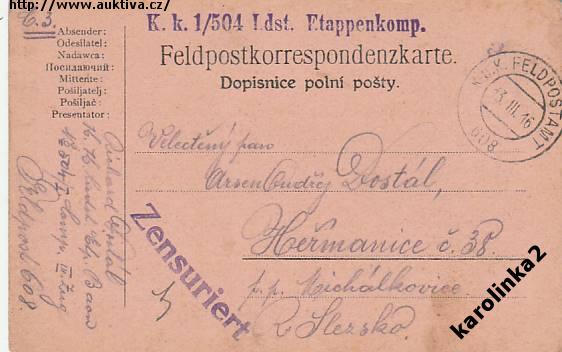 http://www.auktiva.cz/
C. 3.
K. k. 1/504 Ldst. Etappenkomp.
Absender:
Odesílatel:
Nadawca:
Посилаючий:
Mittente:
Pošiljatelj:
Pošiljač:
Presentator:
Feldpostkorrespondenzkarte.
Dopisnice polní pošty.
K.u.K. FELDPOSTAMT
13. III. 16
608
Richard Dostál
Baon
Feldpost 608.
Velectěný pan
Ondřej Dostál,
Heřmanice č. 38.
p. p. Michálkovice.
R. Slezsko.
Zensuriert
karolinka2